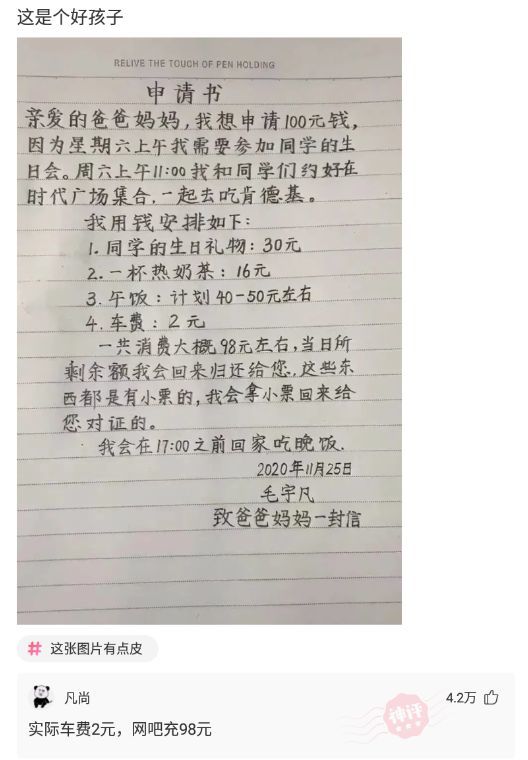 这是个好孩子
RELIVE THE TOUCH OF PEN HOLDING
申请书
亲爱的爸爸妈妈,我想申请100元钱,
因为星期六上午我需要参加同学的生
日会。周六上午11:00我和同学们约好在
时代广场集合,一起去吃肯德基。
我用钱安排如下:
1.同学的生日礼物:30元
2.一杯热奶茶:16元
3.午饭:计划40-50元左右
4.车费:2元
一共消费大概98元左右,当日所
剩余额我会回来归还给您,这些东
西都是有小票的,我会拿小票回来给
您对证的。
我会在17:00之前回家吃晚饭.
2020年11月25日
毛宇凡
致爸爸妈妈一封信
# 这张图片有点皮
凡尚
神评
4.2万
实际车费2元，网吧充98元